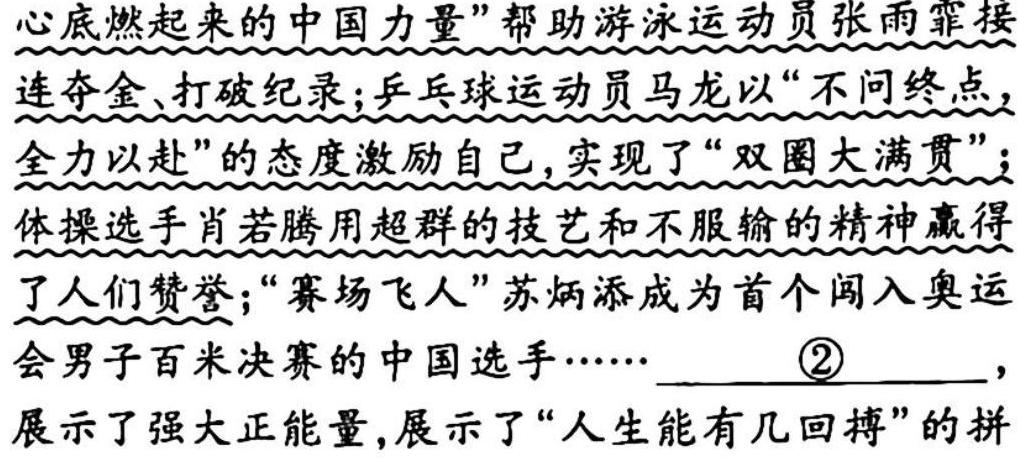 心底燃起来的中国力量”帮助游泳运动员张雨霏接
连夺金、打破纪录；乒乓球运动员马龙以“不问终点，
全力以赴”的态度激励自己，实现了“双圈大满贯”；
体操选手肖若腾用超群的技艺和不服输的精神赢得
了人们赞誉；“赛场飞人”苏炳添成为首个闯入奥运
会男子百米决赛的中国选手……②，
展示了强大正能量，展示了“人生能有几回搏”的拼